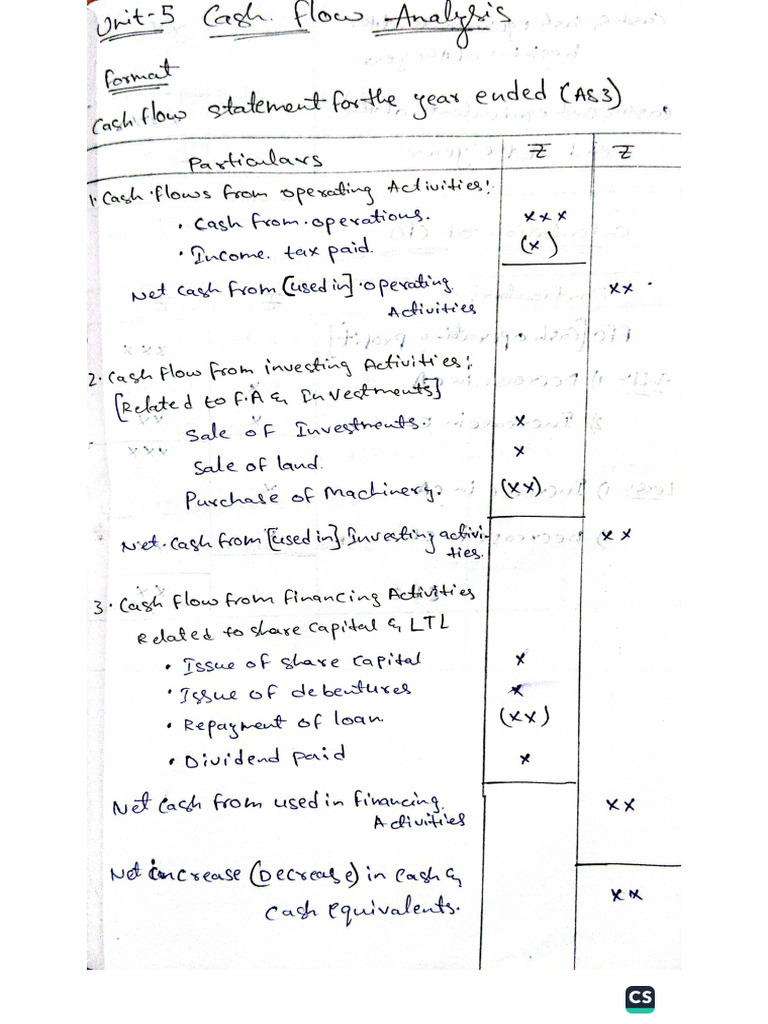 Unit-5 Cash. flow Analysis
format
Cash flow statement for the year ended (AS3)
Particulars ₹ ₹
1. Cash flows from operating Activities:
• Cash from operations. xxx
• Income. tax paid. (x)
Net cash from [used in] operating xx
Activities
2. Cash flow from investing Activities:
[Related to F.A & Investments]
Sale of Investments. x
Sale of land. x
Purchase of Machinery. (xx)
Net. Cash from [used in] Investing activi- xx
ties.
3. Cash flow from financing Activities
Related to share capital & LTL
• Issue of share capital x
• Issue of debentures x
• Repayment of loan. (xx)
• Dividend paid x
Net cash from used in financing xx
Activities
Net increase (Decrease) in cash &
cash equivalents. xx
CS